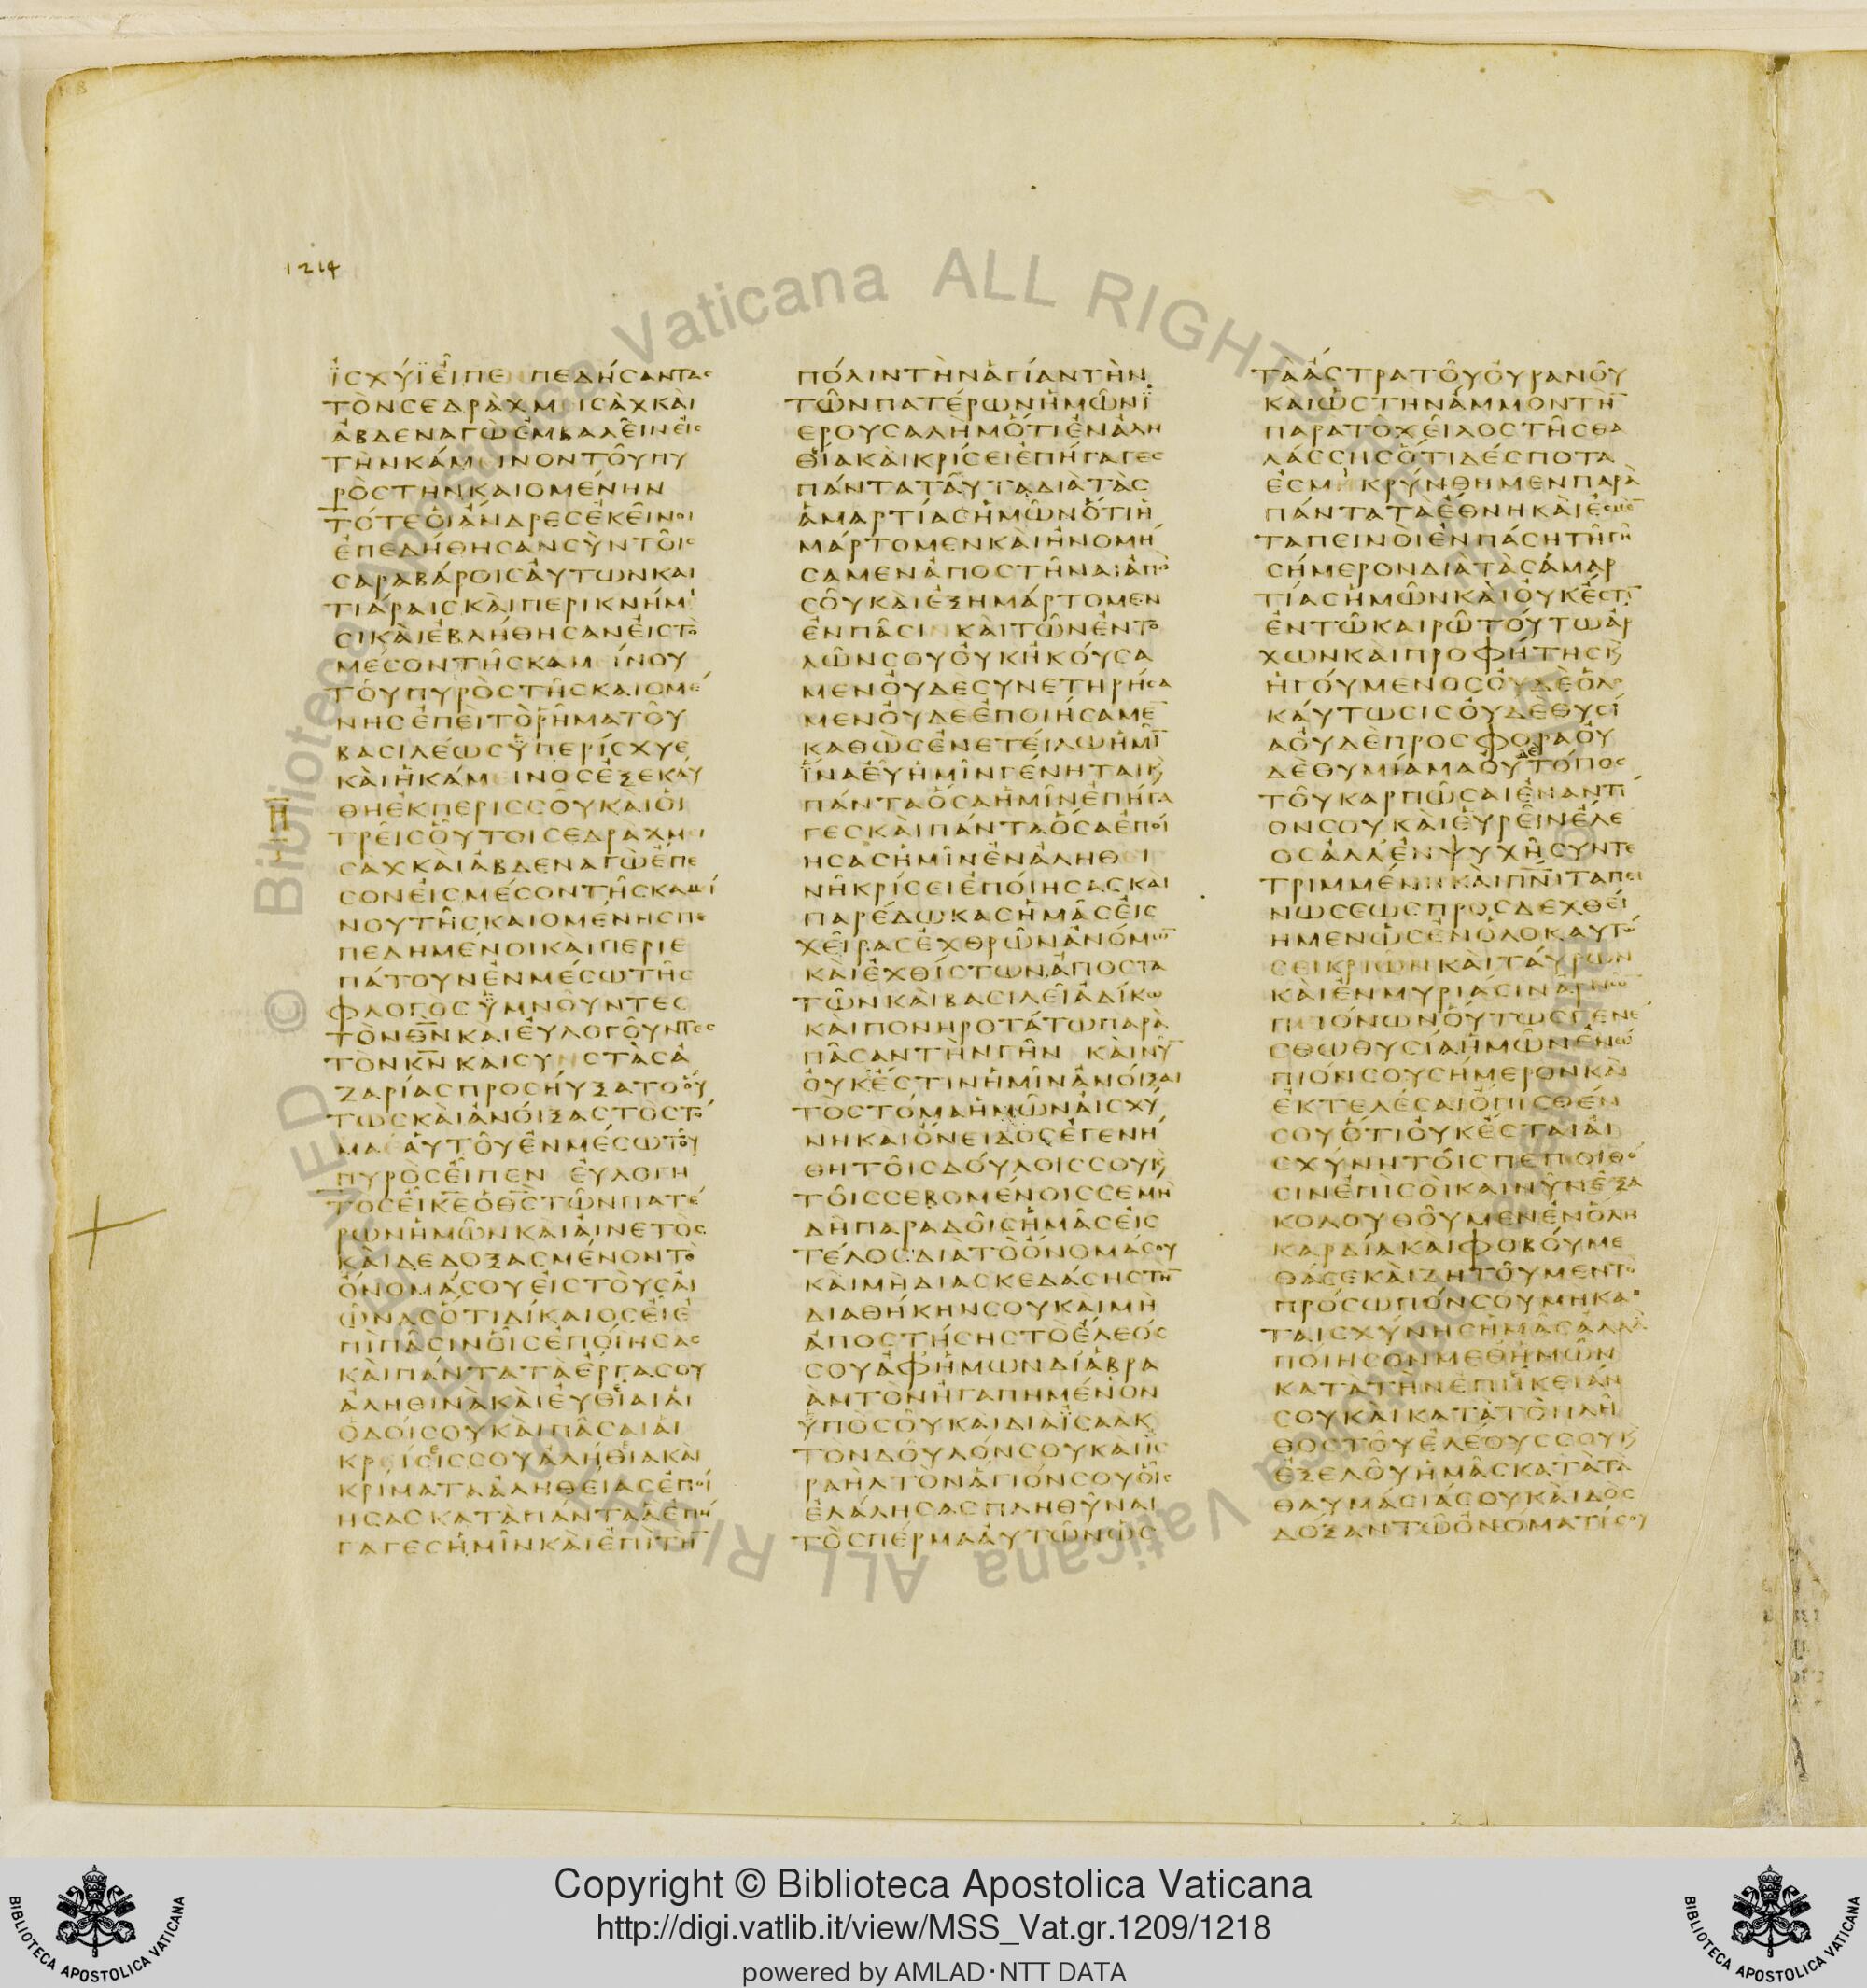 1214
ἰσχύϊ εἶπε πεδήσαντας
τὸν σεδρὰχ μ ισὰχ καὶ
ἀβδεναγὼ ἐμβαλεῖν εἰς
τὴν κάμ ινον τοῦ πυ
ρὸς τὴν καιομένην
τότε οἱ ἄνδρες ἐκεῖνοι
ἐπεδήθησαν σὺν τοῖς
σαραβάροις αὐτων και
τιάραις καὶ περικνημῖ
σι καὶ ἐβλήθησαν εἰς τὸ
μέσον τῆς καμ ίνου
τοῦ πυρὸς τῆς καιομέ
νης ἐπεὶ τὸ ῥῆμα τοῦ
βασιλέως ὑπερίσχυε
καὶ ἡ κάμ ινος ἐξεκαύ
θη ἐκ περισσοῦ και οἱ
τρεῖς οὗτοι σεδραχ μι
σαχ καὶ ἀβδεναγὼ ἔπε
σον εἰς μέσον τῆς καμί
νου τῆς καιομένης πε
πεδημένοι και περιε
πάτουν ἐν μέσω τῆς
φλογος ὑμνοῦντες
τὸν θ̅ν̅ και εὐλογοῦντες
τὸν κ̅ν̅ καὶ συ στὰς ἀ
ζαρίας προσηύξατο οὕ
τως καὶ ἀνοίξας τὸ στό
μα αὐτοῦ ἐν μέσω τοῦ
πυρὸς εἶπεν εὐλογη
τος εἶ κ̅ε̅ ὁ θ̅ς̅ τῶν πατέ
ρων ἡμῶν και αἰνετὸς
καὶ δεδοξασμένον τὸ
ὄνομά σου εἰς τοὺς αἰ
ῶνας ὅτι δίκαιος εἶ ἐ
πὶ πᾶσιν οἷς ἐποίησας
καὶ πάντα τὰ ἔργα σου
ἀληθινὰ καὶ εὐθῖαι αἱ
ὁδοί σου καὶ πᾶσαι αἱ
κρ ίσεις σου ἀλήθια καὶ
κρίματα ἀληθείας ἐποί
ησας κατὰ πάντα ἃ ἐπή
γαγες ἡμῖν καὶ ἐπὶ τὴ̅
πόλιν τὴν ἁγίαν τὴν
τῶν πατέρων ἡμῶν ἱ
ερουσαλὴμ ὅτι ἐν ἀλη
θίᾳ καὶ κρίσει ἐπήγαγες
πάντα ταῦτα διὰ τὰς
ἁμαρτίας ἡμῶν ὅτι ἡ
μάρτομεν καὶ ἠνομή
σαμεν ἀποστῆναι ἀπὸ
σοῦ καὶ ἐξημάρτομεν
ἐν πᾶσι καὶ τῶν ἐντο
λῶν σου οὐκ ἠκούσα
μεν οὐδὲ συνετηρήσα
μεν οὐδε ἐποιήσαμε̅
καθὼς ἐνετείλω ἡμῖ̅
ἵνα εὖ ἡμῖν γένηται κ̀
πάντα ὅσα ἡμῖν ἐπήγα
γες καὶ πάντα ὅσα ἐποί
ησας ἡμῖν ἐν ἀληθ ι
νῆ κρίσει ἐποίησας καὶ
παρέδωκας ἡμᾶς εἰς
χεῖρας ἐχθρῶν ἀνόμω̅
καὶ ἐχθίστων ἀποστα
τῶν καὶ βασιλεῖ ἀδίκω
και πονηροτάτω παρὰ
πᾶσαν τὴν γῆν καὶ νῦ̅
οὐκ ἔστιν ἡμῖν ἀνοῖξαι
τὸ στόμα ἡμῶν αἰσχύ
νη καὶ ὄνειδος ἐγενή
θη τοῖς δούλοις σου κ̀
τοῖς σεβομένοις σε μὴ
δὴ παραδοῖς ἡμᾶς εἰς
τέλος διὰ τὸ ὄνομά σου
καὶ μὴ διασκεδάσης τὴ̅
διαθήκην σου καὶ μὴ
ἀποστήσης τὸ ἔλεός
σου ἀφ ἡμων δι ἀβρα
ὰμ τὸν ἠγαπημένον
ὑπὸ σοῦ και δια ἰσαὰκ
τον δοῦλόν σου και ἰς
ραὴλ τὸν ἅγιόν σου οἷς
ἐλάλησας πληθῦναι
τὸ σπέρμα αὐτῶν ὡς
τὰ ἄστρα τοῦ οὐρανοῦ
και ὡς τὴν ἄμμον τὴ̅
παρα τὸ χεῖλος τῆς θα
λάσσης ὅτι δέσποτα
ἐσμ ικρύνθημεν παρὰ
πάντα τὰ ἔθνη καὶ ἐσμὲ̅
ταπεινοὶ ἐν πάση τῆ γῆ
σήμερον διὰ τὰς ἁμαρ
τίας ἡμῶν καὶ οὐκ ἔστι̅
ἐν τῶ καιρῶ τούτω ἄρ
χων καὶ προφήτης κ̀
ἡγούμενος οὐδὲ ὁλο
καύτωσις οὐδὲ θυσί
α οὐδὲ προσφορα οὐ
δὲ θυμίαμα οὐδὲ τόπος
τοῦ καρπῶσαι ἐναντί
ον σου καὶ εὑρεῖν ἔλε
ος ἀλλ ἐν ψυχῆ συντε
τριμμένη καὶ π̅ν̅ι̅ ταπει
νωσεως προσδεχθεί
ημεν ὡς ἐν ὁλοκαυτώ
σει κριῶν καὶ ταύρων
καὶ ἐν μυριάσιν ἀρνῶ̅
πιόνων οὕτως γενέ
σθω θυσία ἡμῶν ἐνώ
πιόν σου σήμερον καὶ
ἐκτελέσαι ὄπισθέν
σου ὅτι οὐκ ἔσται αἰ
σχύνη τοῖς πεποιθό
σιν ἐπὶ σοὶ και νῦν ἐξα
κολουθοῦμεν ἐν ὅλη
καρδία και φοβούμε
θά σε καὶ ζητοῦμεν τὸ
πρόσωπόν σου μὴ κα
ταισχύνης ἡμᾶς ἀλλὰ
ποίησον μεθ ἡμῶν
κατὰ τὴν ἐπιείκειάν
σου καὶ κατὰ τὸ πλῆ
θος τοῦ ἐλέους σου κ̀
ἐξελοῦ ἡμᾶς κατὰ τὰ
θαυμάσιά σου καὶ δὸς
δόξαν τῶ ὀνόματί σου
© Biblioteca Apostolica Vaticana ALL RIGHTS RESERVED
Copyright © Biblioteca Apostolica Vaticana
http://digi.vatlib.it/view/MSS_Vat.gr.1209/1218
powered by AMLAD·NTT DATA
BIBLIOTECA APOSTOLICA VATICANA
BIBLIOTECA APOSTOLICA VATICANA